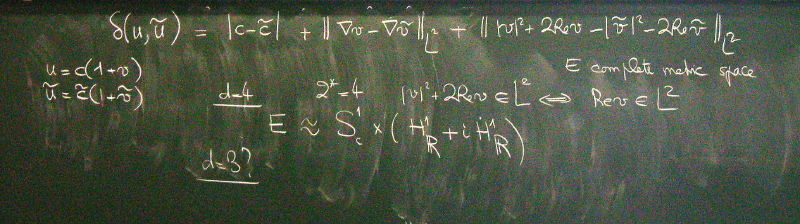 δ(u, ũ) = |c-c̃| + ‖∇v - ∇ṽ‖_{L²} + ‖|v|² + 2Rev - |ṽ|² - 2Reṽ‖_{L²}
u = c(1+v)
E complete metric space
ũ = c̃(1+ṽ)
d=4 2* = 4 |v|² + 2Rev ∈ L² ⟺ Rev ∈ L²
E ≈ S¹_c × (H¹_ℝ + i Ḣ¹_ℝ)
d=3?